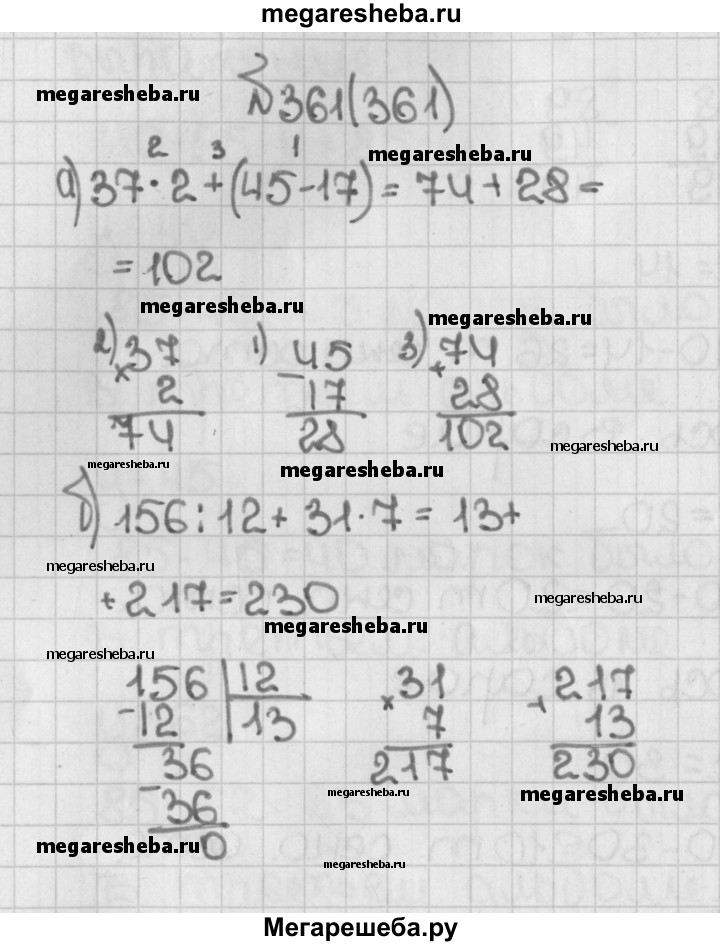 megaresheba.ru
megaresheba.ru
№361(361)
2 3 1
megaresheba.ru
а) 37·2+(45-17)=74+28=
=102
megaresheba.ru
megaresheba.ru
2) 37 1) 45 3) 74
× 2 - 17 + 28
74 28 102
megaresheba.ru
megaresheba.ru
megaresheba.ru
б) 156:12+31·7=13+
megaresheba.ru
+217=230
megaresheba.ru
megaresheba.ru
megaresheba.ru
156 12 × 31 + 217
-12 13 7 13
36 217 230
-36
megaresheba.ru
megaresheba.ru
0
megaresheba.ru
megaresheba.ru
Мегарешеба.ру